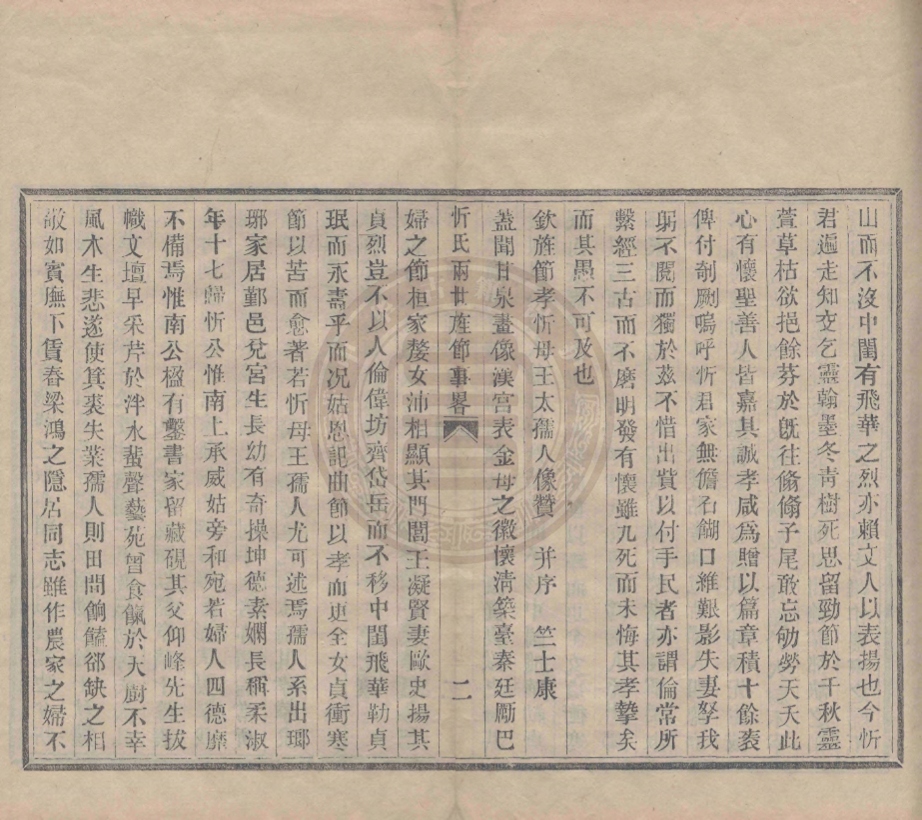 山而不沒中閨有飛華之烈亦賴文人以表揚也今忻
君遍走知交乞靈翰墨冬青樹死思留勁節於千秋靈
萱草枯欲挹餘芬於旣往翛翛子尾敢忘劬勞夭夭此
心有懷聖善人皆嘉其誠孝咸爲贈以篇章積十餘袠
俾付剞劂嗚呼忻君家無儋石餬口維艱影失妻孥我
躬不閱而獨於茲不惜出貲以付手民者亦謂倫常所
繫經三古而不磨明發有懷雖九死而未悔其孝摯矣
而其愚不可及也
欽旌節孝忻母王太孺人像贊 并序 竺士康
蓋聞甘泉畫像漢宮表金母之徽懷淸築臺秦廷勵巴
忻氏兩世旌節事畧 二
婦之節桓家嫠女沛相顯其門閭王凝賢妻歐史揚其
貞烈豈不以人倫偉坊齊岱岳而不移中閨飛華勒貞
珉而永壽乎而况姑恩記曲節以孝而更全女貞衝寒
節以苦而愈著若忻母王孺人尤可述焉孺人系出瑯
琊家居鄞邑兌宮生長幼有奇操坤德素嫻長稱柔淑
年十七歸忻公惟南上承威姑旁和宛若婦人四德靡
不備焉惟南公楹有鑿書家留藏硯其父仰峰先生拔
幟文壇早采芹於泮水蜚聲藝苑曾食餼於天廚不幸
風木生悲遂使箕裘失業孺人則田間餉饁郤缺之相
敬如賓廡下賃舂梁鴻之隱居同志雖作農家之婦不